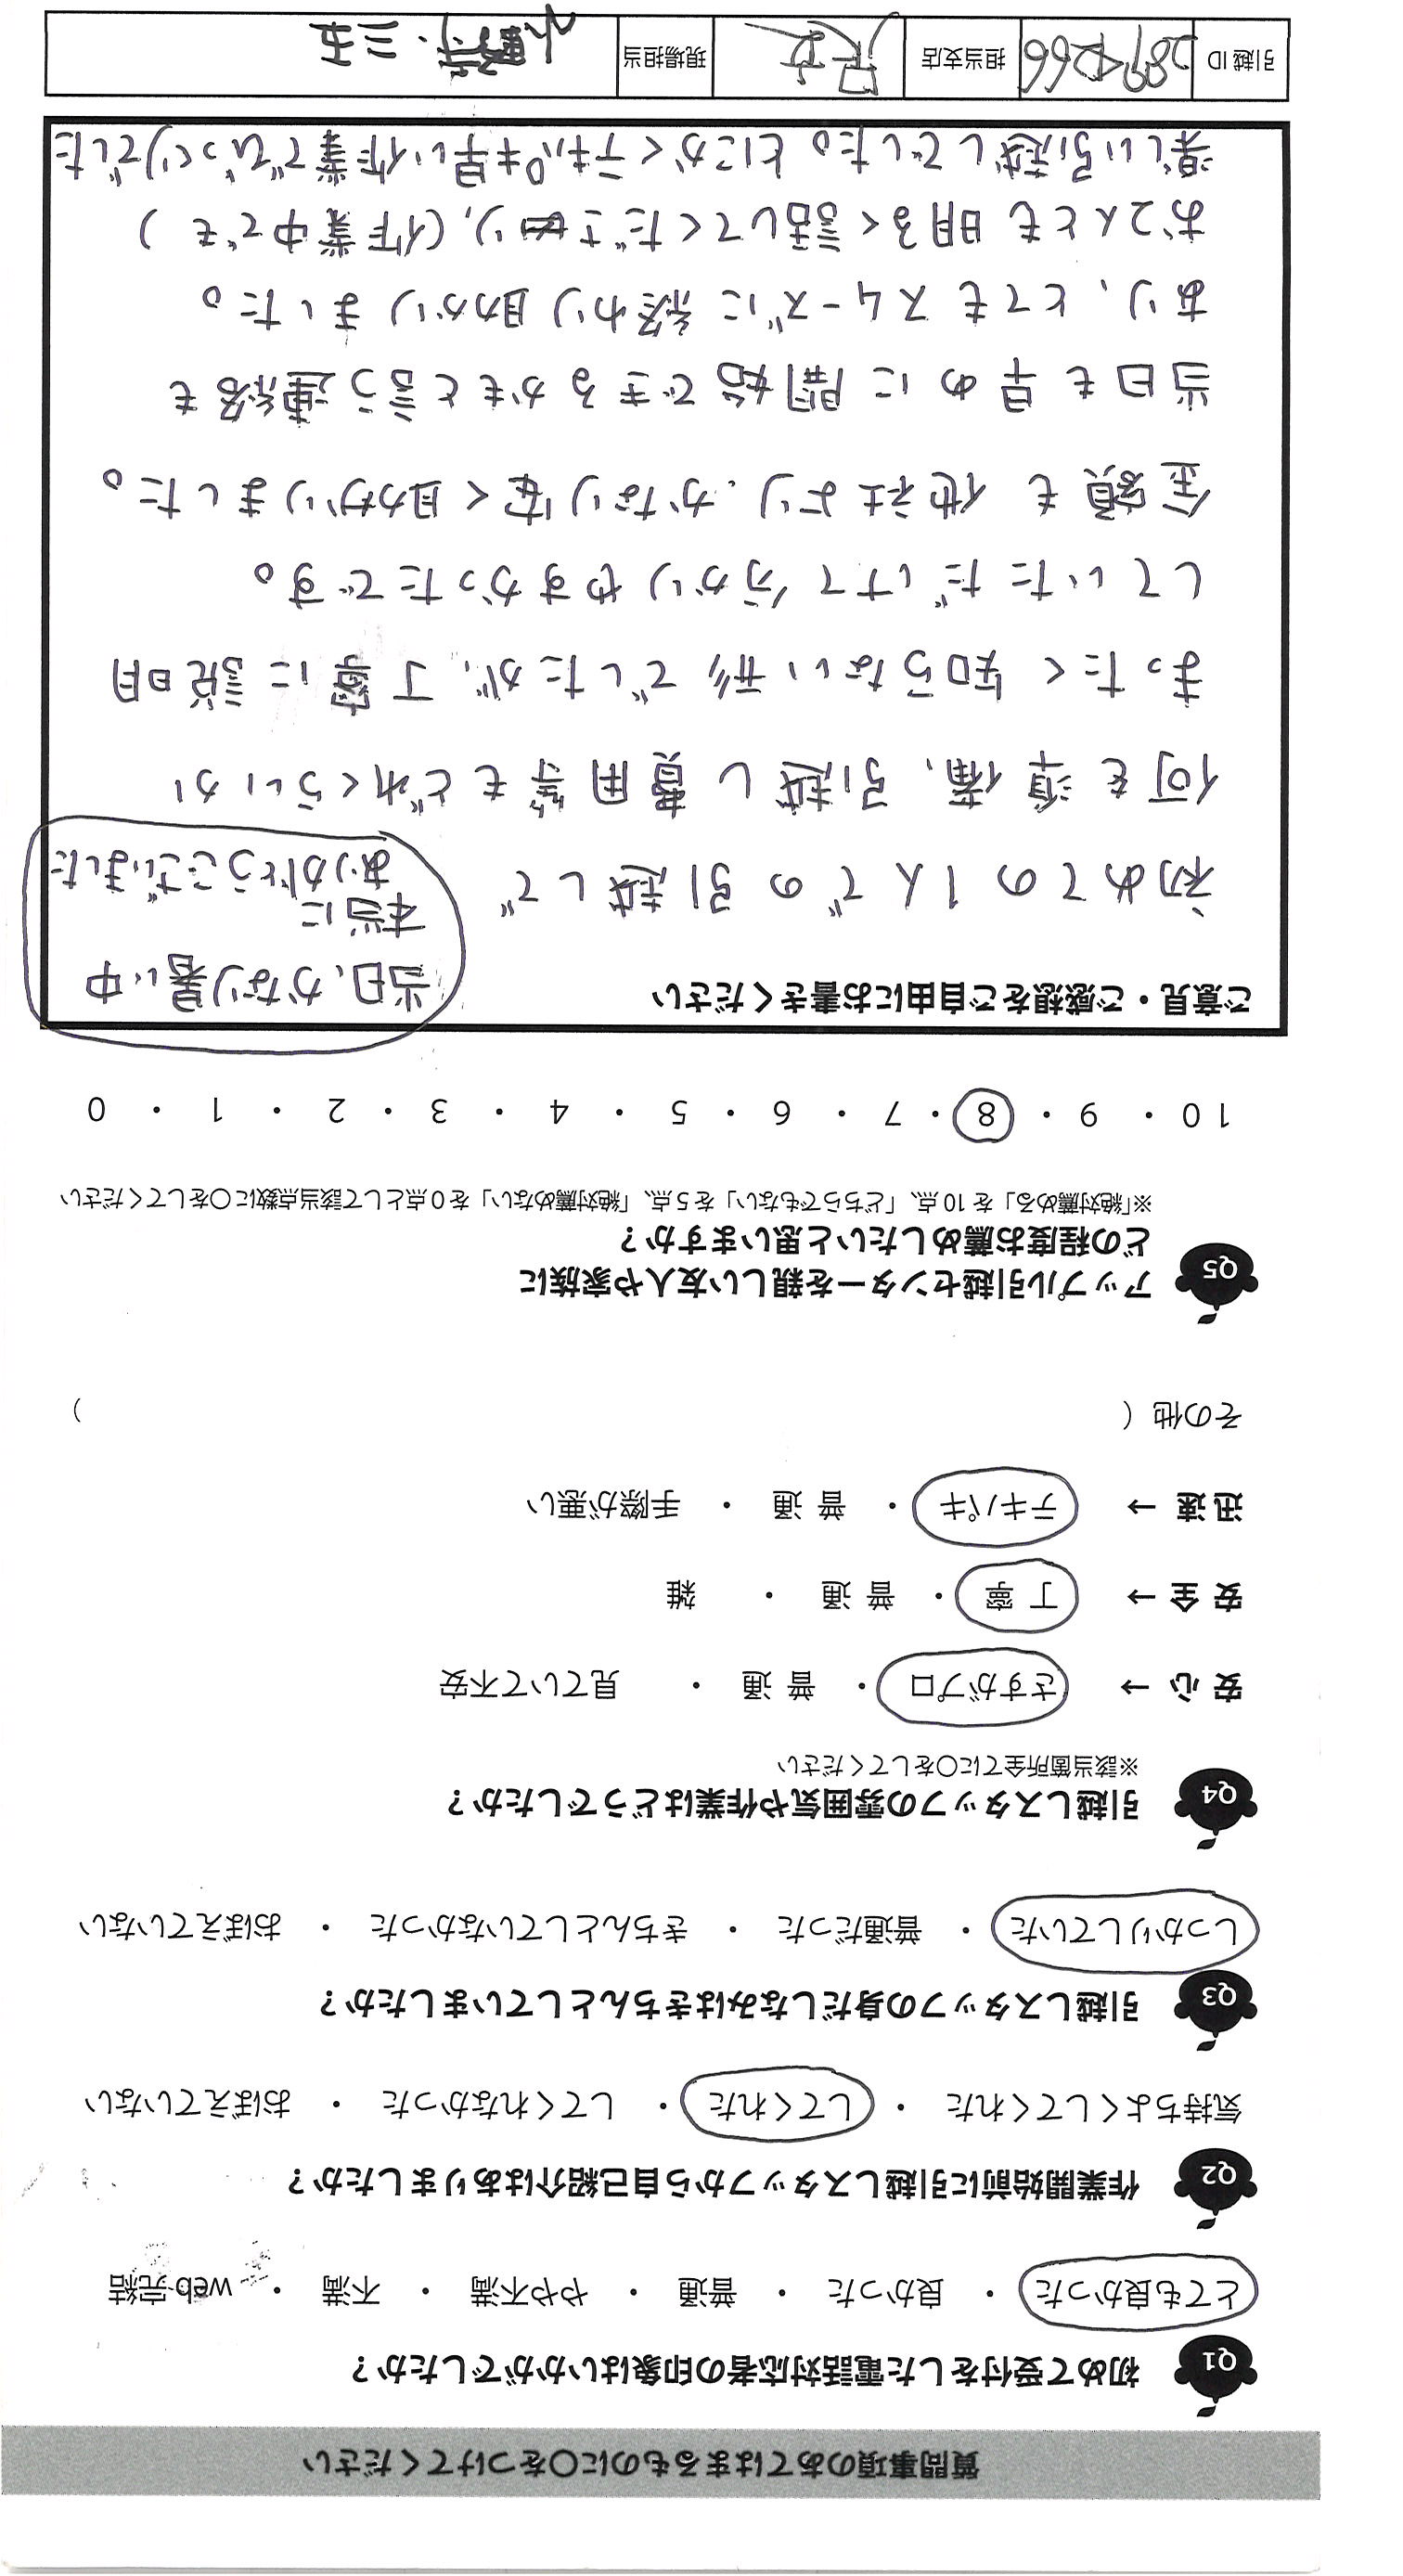 質問事項のあてはまるものに○をつけてください
Q1 初めて受付をした電話対応者の印象はいかがでしたか？
とても良かった ・ 良かった ・ 普通 ・ やや不満 ・ 不満 ・ web完結
Q2 作業開始前に引越しスタッフから自己紹介はありましたか？
気持ちよくしてくれた ・ してくれた ・ してくれなかった ・ おぼえていない
Q3 引越しスタッフの身だしなみはきちんとしていましたか？
しっかりしていた ・ 普通だった ・ きちんとしていなかった ・ おぼえていない
Q4 引越しスタッフの雰囲気や作業はどうでしたか？
※該当箇所全てに○をしてください
安心→ さすがプロ ・ 普通 ・ 見ていて不安
安全→ 丁寧 ・ 普通 ・ 雑
迅速→ テキパキ ・ 普通 ・ 手際が悪い
その他（ ）
Q5 アップル引越センターを親しい友人や家族に
どの程度お薦めしたいと思いますか？
※「絶対薦める」を10点、「どちらでもない」を5点、「絶対薦めない」を0点として該当点数に○をしてください
10 ・ 9 ・ 8 ・ 7 ・ 6 ・ 5 ・ 4 ・ 3 ・ 2 ・ 1 ・ 0
ご意見・ご感想をご自由にお書きください
当日、かなり暑い中
本当に
ありがとうございました
初めての1人での引越しで
何を準備、引越し費用等もどれくらいか
まったく知らない形でしたが、丁寧に説明
していただけて分かりやすかったです。
金額も他社より、かなり安く助かりました。
当日も早めに開始できるかもと言う連絡も
あり、とてもスムーズに終わり助かりました。
お2人とも明るく話してくださり、(作業中でも)
楽しい引越しでした。とにかくテキパキ早い作業でびっくりでした
引越ID 担当支店 現場担当 小野寺・三五